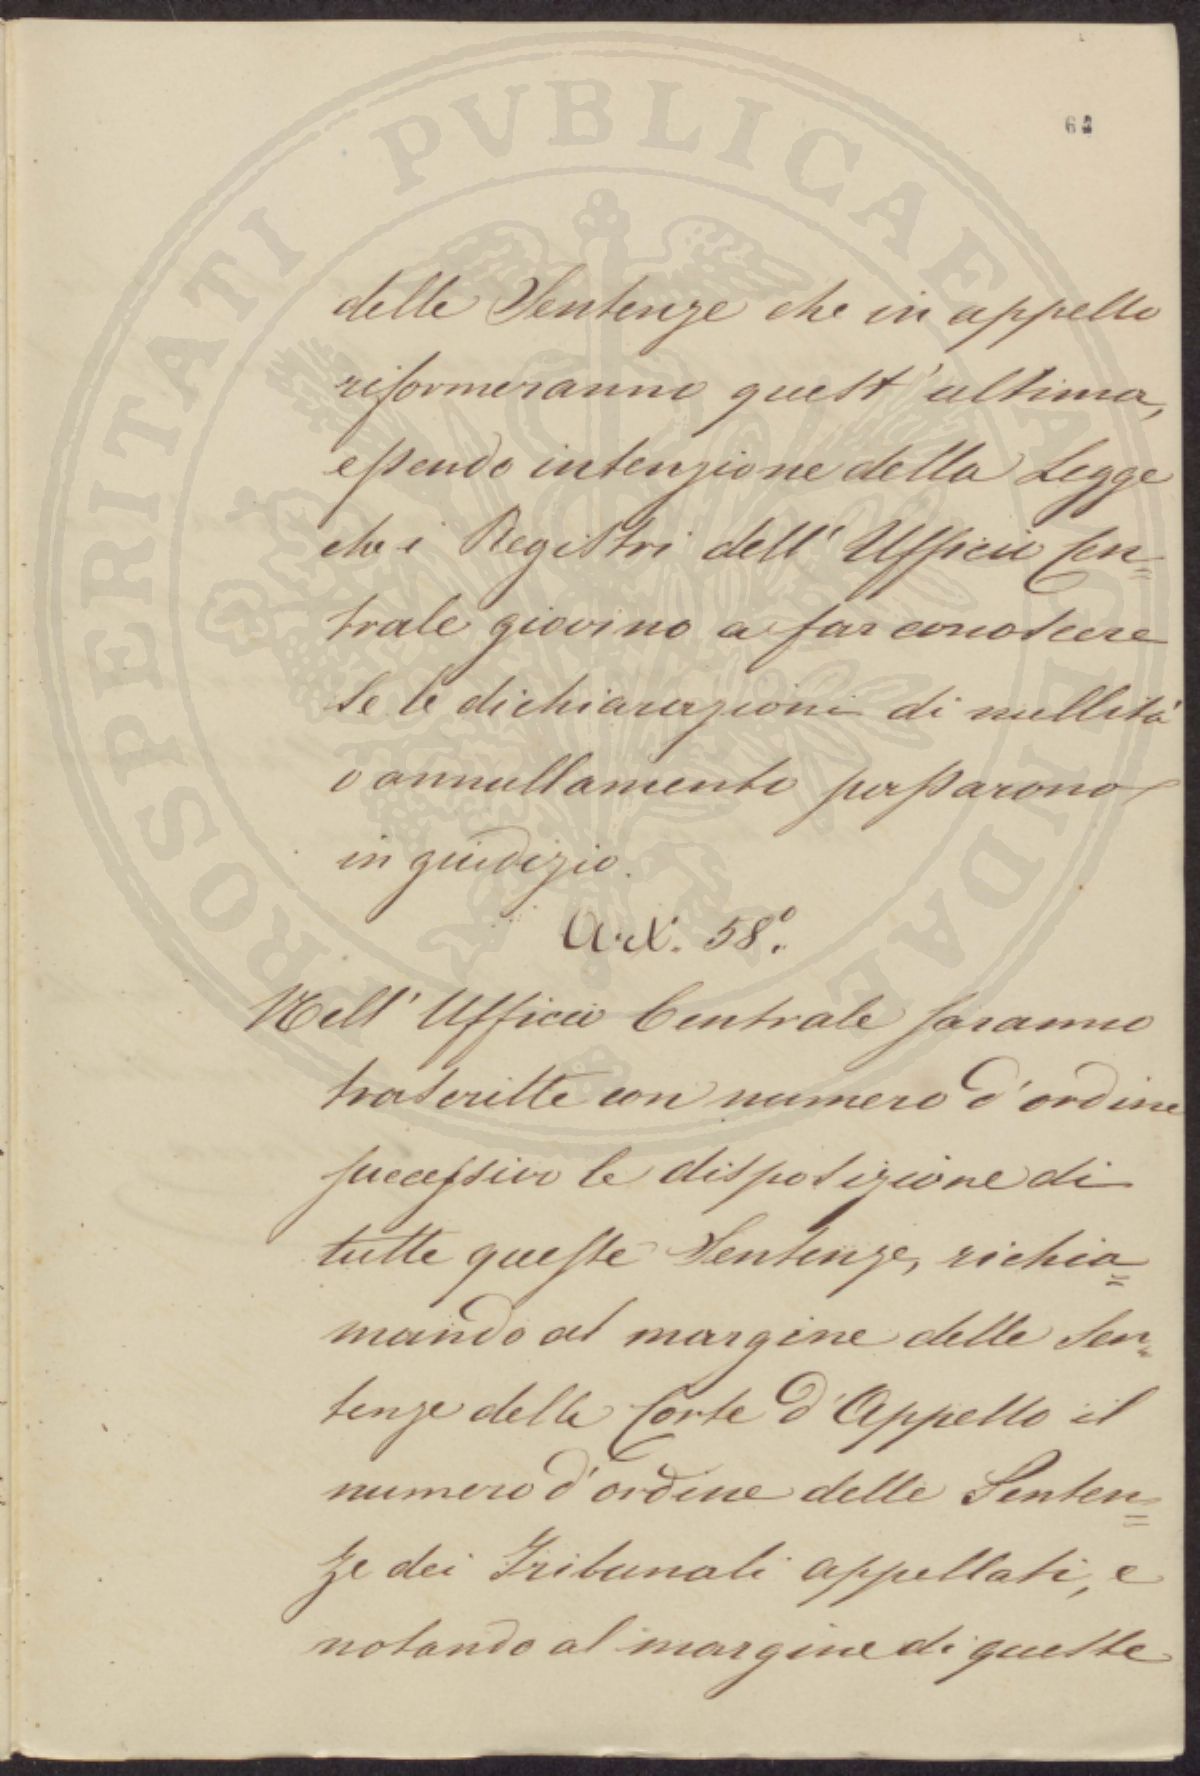 PROSPERITATI PVBLICAE AVGENDAE
64
delle Sentenze che in appello
riformeranno quest'ultima,
essendo intenzione della Legge
che i Registri dell'Ufficio Cen=
trale giovino a far conoscere
se le dichiarazioni di nullità
o annullamento passarono
in giudizio.
Art. 58°.
Nell'Ufficio Centrale saranno
trascritte con numero d'ordine
successivo le disposizione di
tutte queste Sentenze, richia=
mando al margine delle Sen=
tenze della Corte d'Appello il
numero d'ordine delle Senten=
ze dei Tribunali appellati, e
notando al margine di queste